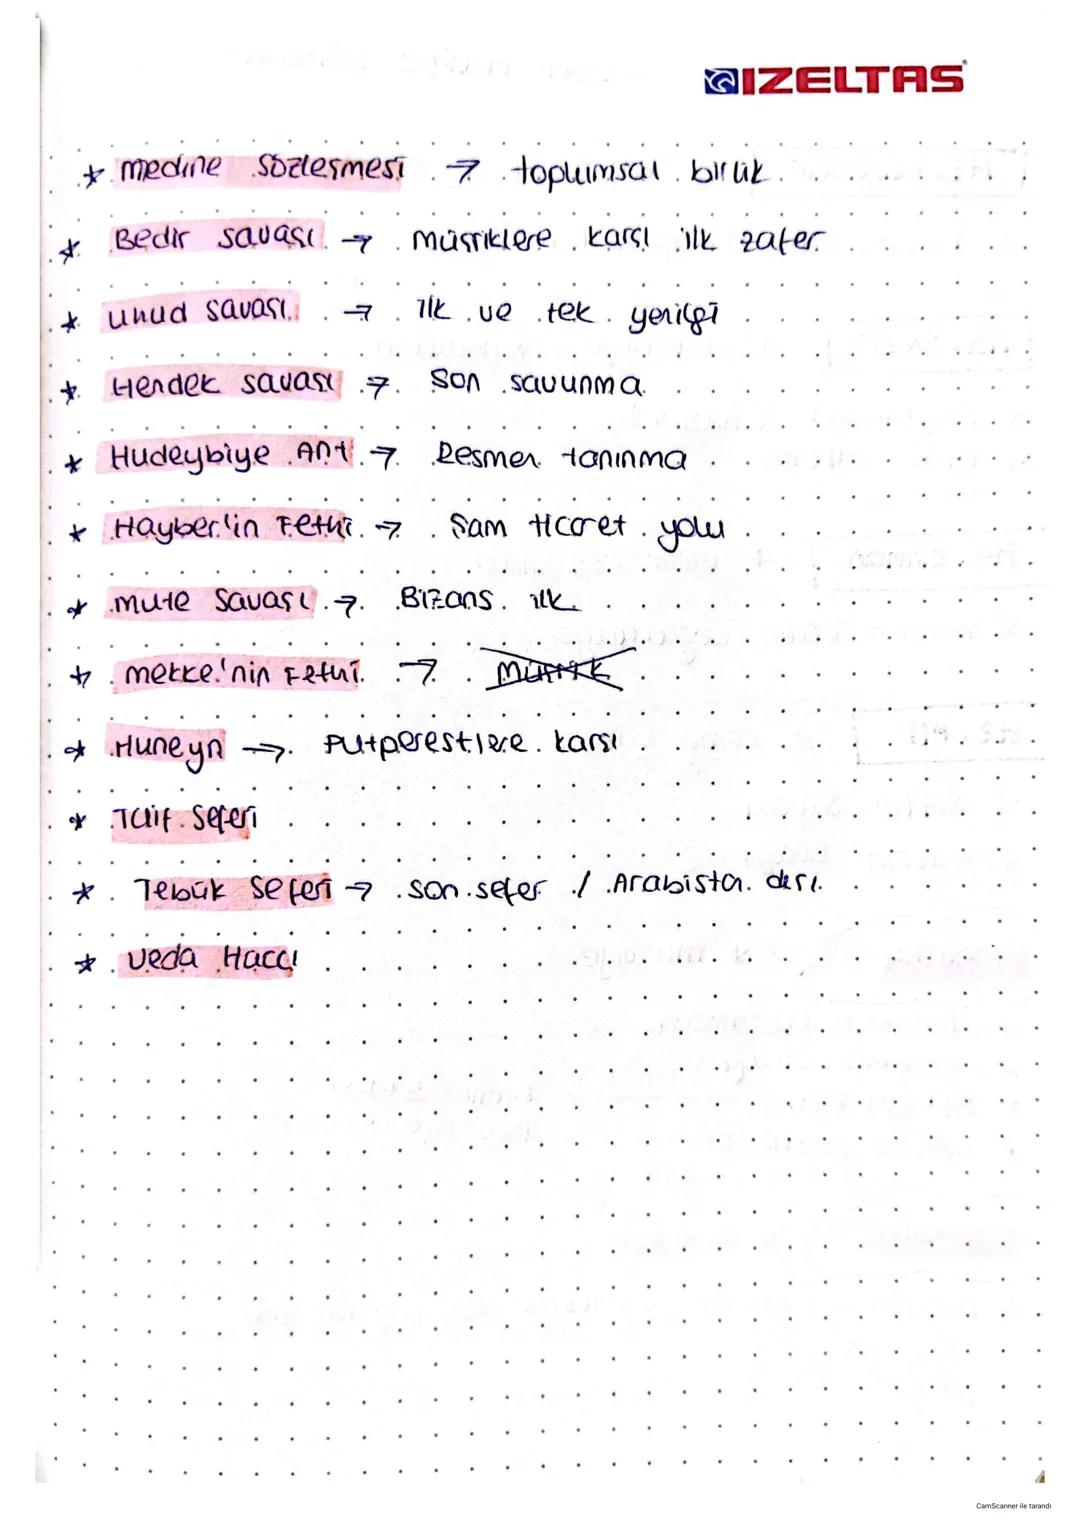 IZELTAS
* Medine Sözleşmesi → toplumsal birlik.
* Bedir savaşı → müşriklere karşı ilk zafer
* Uhud savaşı → ilk ve tek yenilgi
* Hendek savaşı → Son savunma
* Hudeybiye Ant → Resmen tanınma
* Hayber'in Fethi → Şam ticaret yolu
* Mute Savaşı → Bizans ilk
* Mekke'nin Fethi →
* Huneyn → Putperestlere karşı
* Taif Seferi
* Tebük Seferi → son sefer / Arabistan dışı.
* Veda Haccı
CamScanner ile tarandı